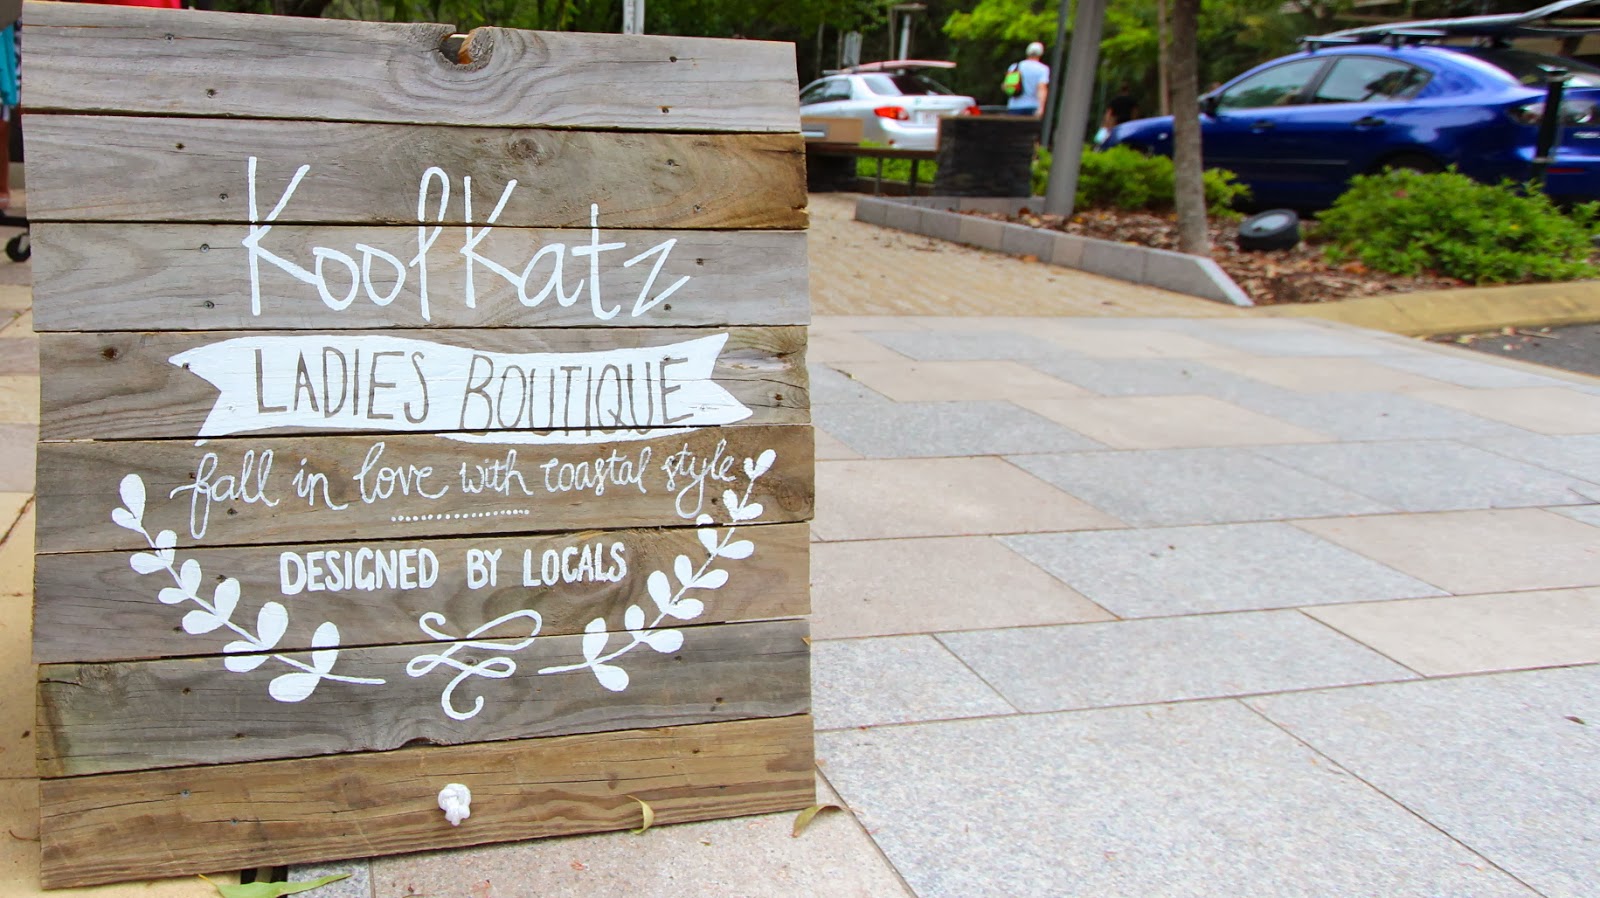 KoolKatz
LADIES BOUTIQUE
fall in love with coastal style
DESIGNED BY LOCALS